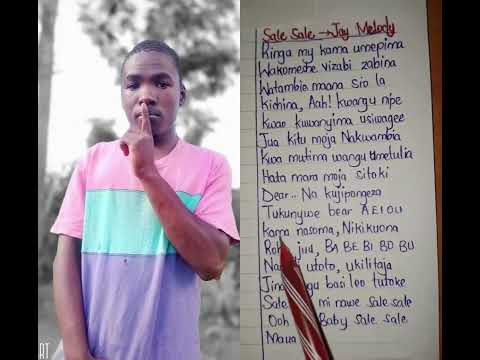 Sale Sale → Jay Melody
Ringa my kama umepima
Wakomeshe vizabi zabina
Watambie maana sio la
Kichina, Aah! kwangu nipe
Kwao kuwanyima usiwagee
Jua kitu moja Nakwambia
Kwa mutima wangu umetulia
Hata mara moja sitoki
Dear.. Na kujipongeza
Tukunywe bear A E I O U
Kama nasoma, Nikikuona
juu, BA BE BI BO BU
utoto, ukilitaja
basi leo tutoke
mi nawe sale sale
Ooh Baby sale sale
Maua
RT